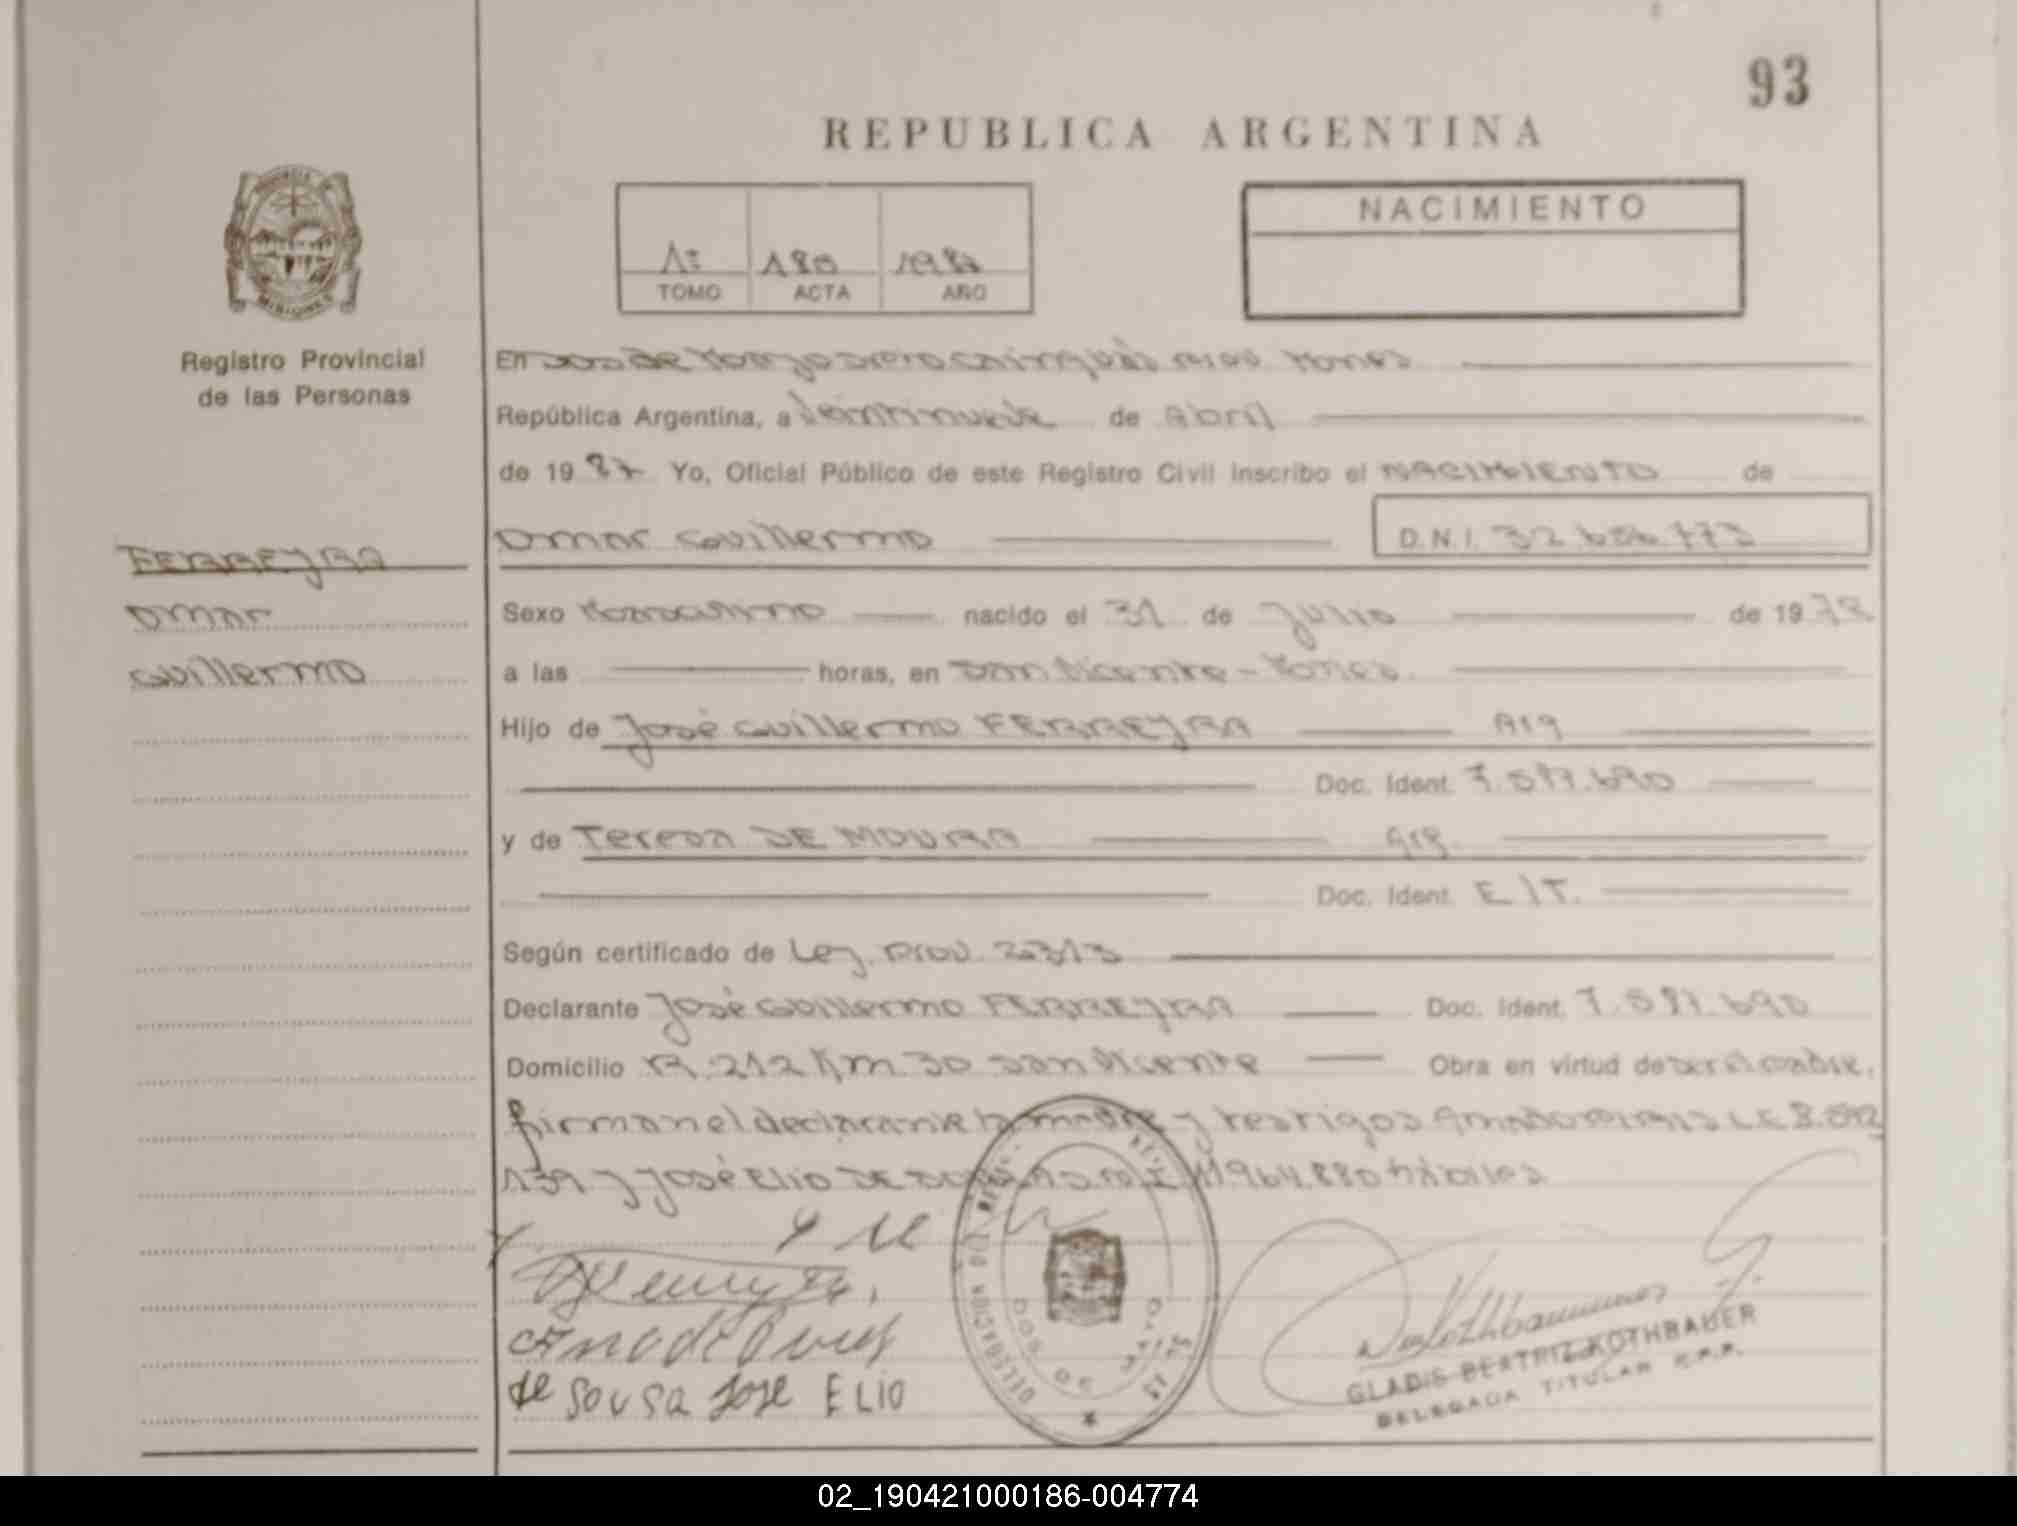 93
REPUBLICA ARGENTINA
NACIMIENTO
1º 180 1987
TOMO ACTA AÑO
Registro Provincial
de las Personas
En Dos de Mayo
República Argentina, a Veintinueve de Abril
de 1987 Yo, Oficial Público de este Registro Civil inscribo el NACIMIENTO de
Omar Guillermo D.N.I. 32.656.773
FERREYRA
Omar
Guillermo
Sexo Masculino nacido el 31 de Julio de 1978
a las horas, en San Vicente -
Hijo de José Guillermo FERREYRA Arg
Doc. Ident. 7.597.690
y de Teresa DE MOURA Arg.
Doc. Ident. E/T.
Según certificado de Ley. Prov. 2313
Declarante José Guillermo FERREYRA Doc. Ident. 7.597.690
Domicilio R. 212 Km 30 San Vicente Obra en virtud de
firman el declarante la madre y testigos L.E 8.542
139 y José Elio DE 11.964.880
de SOUSA JOSE ELIO
DELEGACION
DOS DE MAYO
GLADIS BEATRIZ KOTHBAUER
DELEGADA TITULAR R.P.P.
02_190421000186-004774